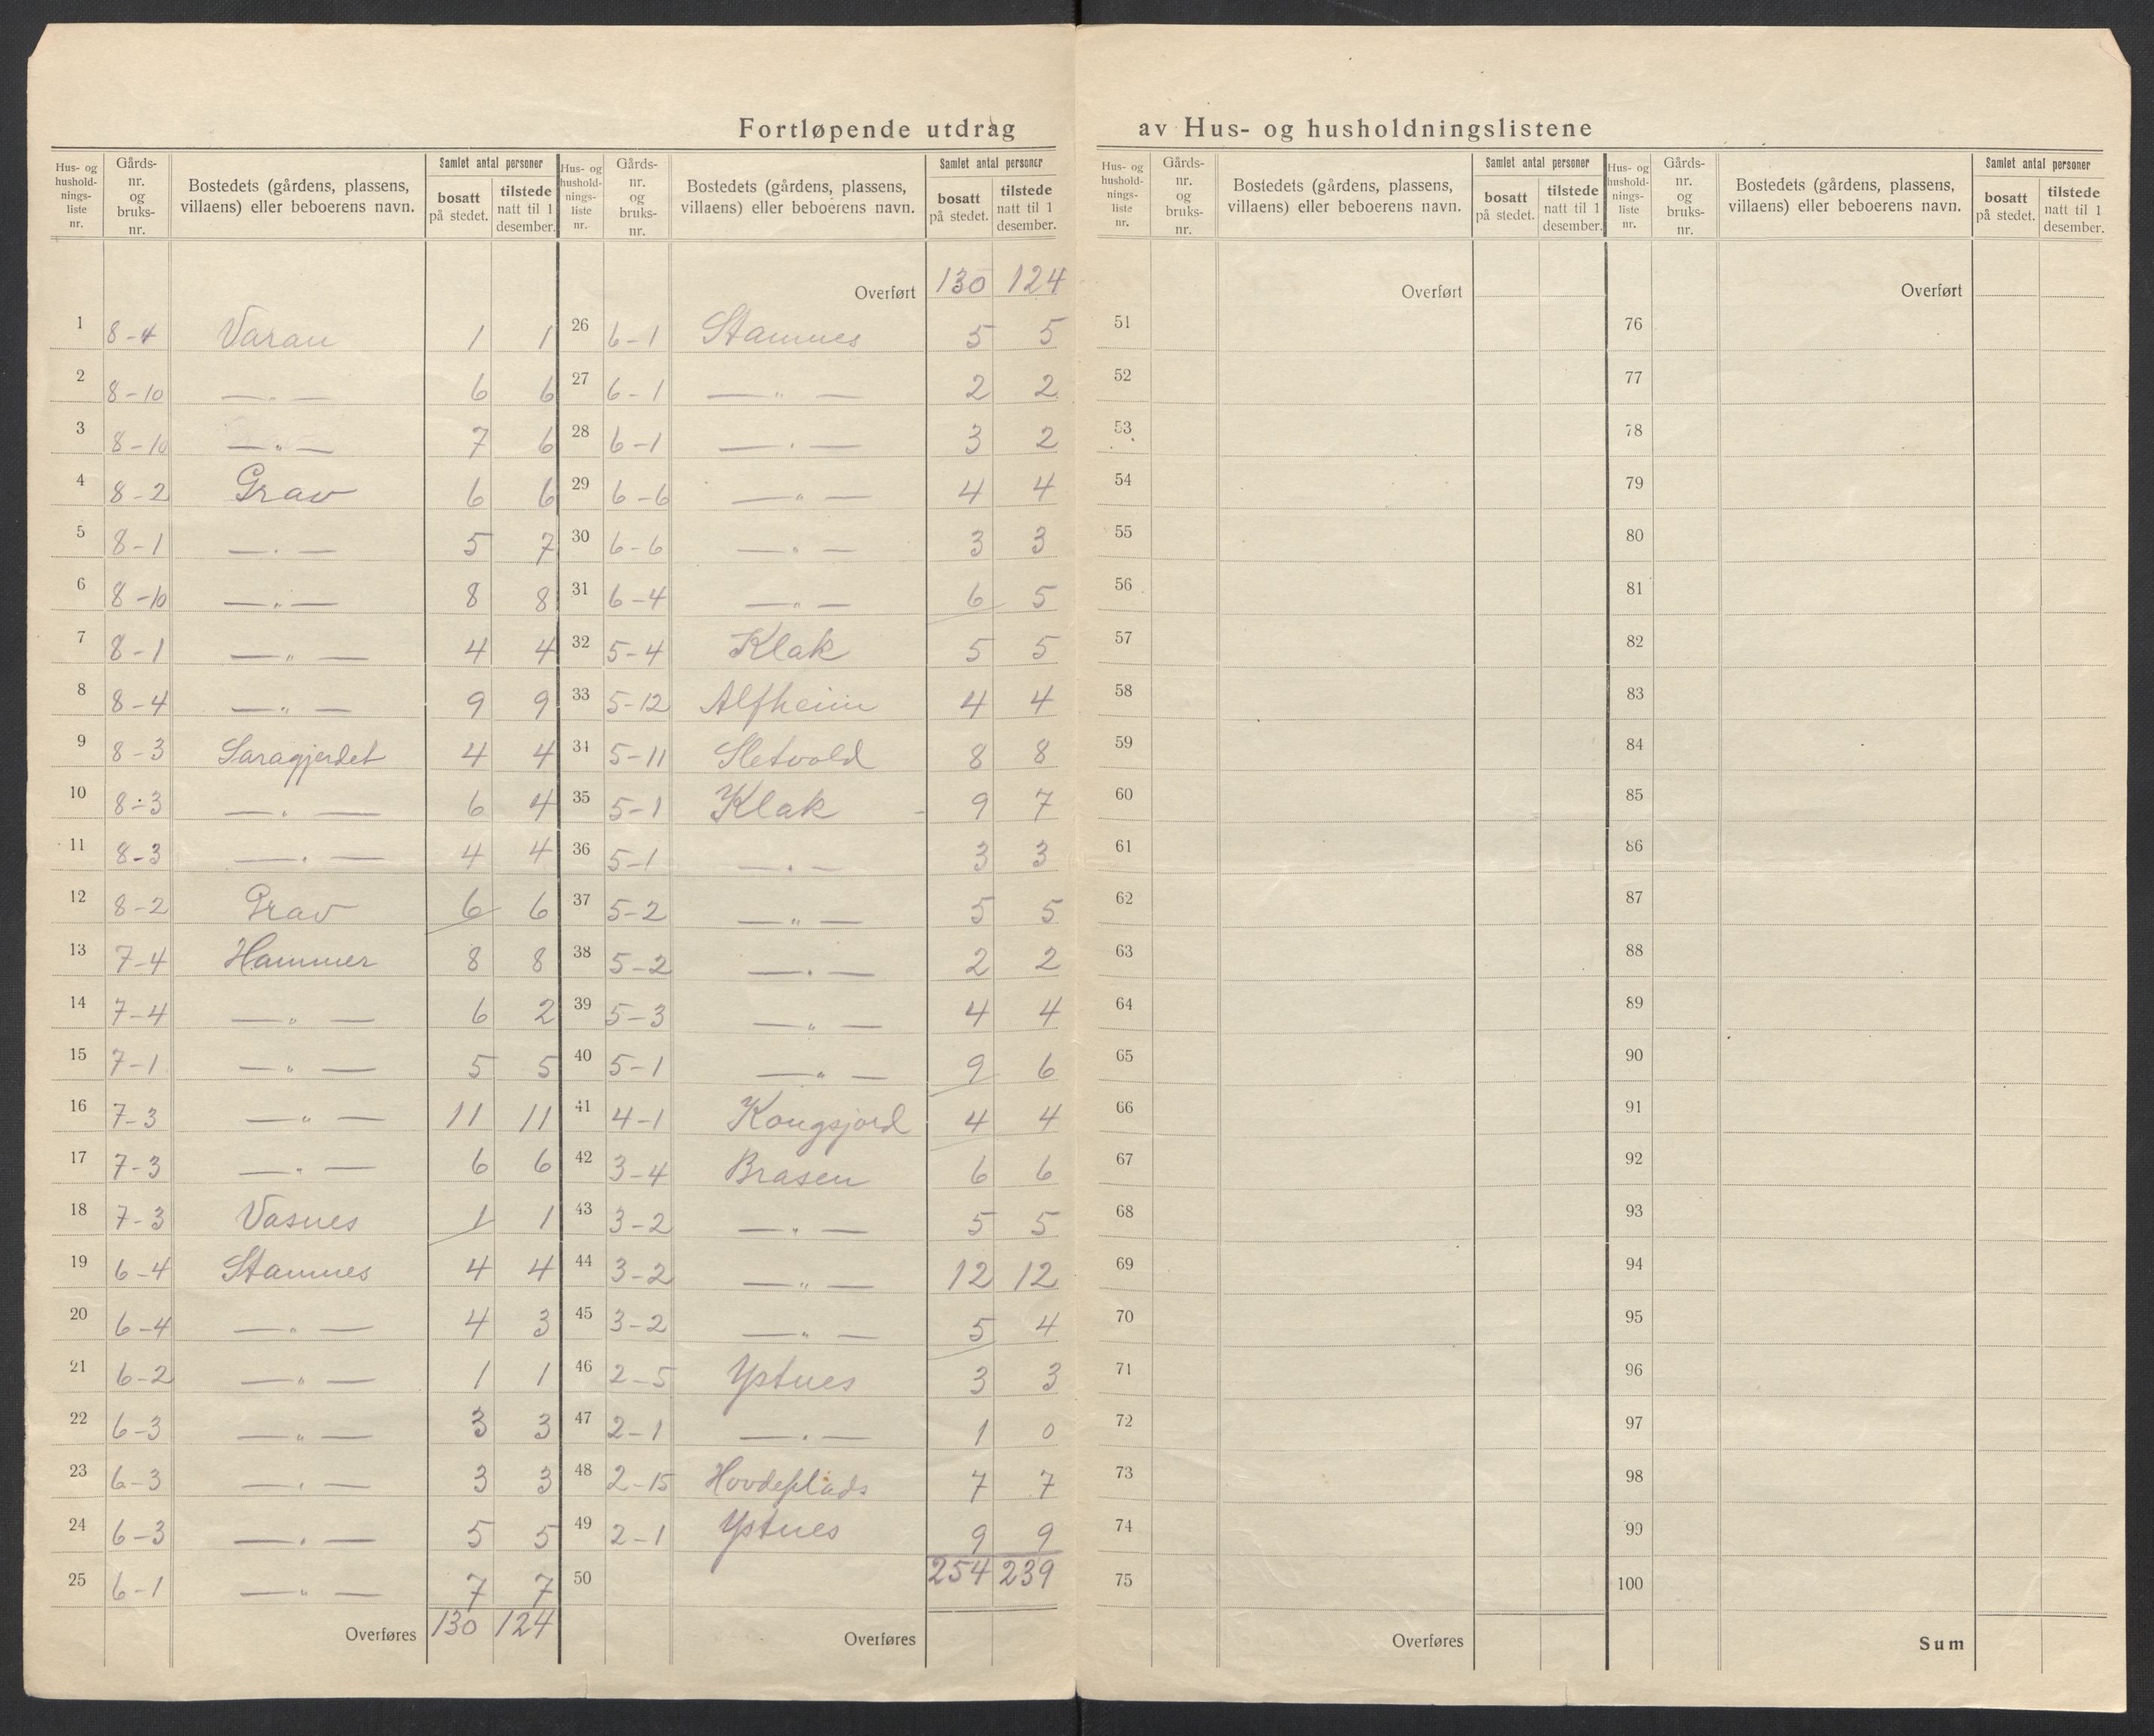 Fortløpende utdrag av Hus- og husholdningslistene
Hus- og hushold-nings-liste nr. | Gårds-nr. og bruks-nr. | Bostedets (gårdens, plassens, villaens) eller beboerens navn. | Samlet antal personer | bosatt på stedet. | tilstede natt til 1 desember.
1 8-4 Varan 1 1
2 8-10 —„— 6 6
3 8-10 —„— 7 6
4 8-2 Grav 6 6
5 8-1 —„— 5 7
6 8-10 —„— 8 8
7 8-1 —„— 4 4
8 8-4 —„— 9 9
9 8-3 Saragjerdet 4 4
10 8-3 —„— 6 4
11 8-3 —„— 4 4
12 8-2 Grav 6 6
13 7-4 Hammer 8 8
14 7-4 —„— 6 2
15 7-1 —„— 5 5
16 7-3 —„— 11 11
17 7-3 —„— 6 6
18 7-3 Vasnes 1 1
19 6-4 Stamnes 4 4
20 6-4 —„— 4 3
21 6-2 —„— 1 1
22 6-3 —„— 3 3
23 6-3 —„— 3 3
24 6-3 —„— 5 5
25 6-1 —„— 7 7
Overføres 130 124
Hus- og hushold-nings-liste nr. | Gårds-nr. og bruks-nr. | Bostedets (gårdens, plassens, villaens) eller beboerens navn. | Samlet antal personer | bosatt på stedet. | tilstede natt til 1 desember.
Overført 130 124
26 6-1 Stamnes 5 5
27 6-1 —„— 2 2
28 6-1 —„— 3 2
29 6-6 —„— 4 4
30 6-6 —„— 3 3
31 6-4 —„— 6 5
32 5-4 Klak 5 5
33 5-12 Alfheim 4 4
34 5-11 Sletvold 8 8
35 5-1 Klak 9 7
36 5-1 —„— 3 3
37 5-2 —„— 5 5
38 5-2 —„— 2 2
39 5-3 —„— 4 4
40 5-1 —„— 9 6
41 4-1 Kongsjord 4 4
42 3-4 Brasen 6 6
43 3-2 —„— 5 5
44 3-2 —„— 12 12
45 3-2 —„— 5 4
46 2-5 Ystnes 3 3
47 2-1 —„— 1 0
48 2-15 Hovdeplads 7 7
49 2-1 Ystnes 9 9
50 254 239
Overføres
Hus- og hushold-nings-liste nr. | Gårds-nr. og bruks-nr. | Bostedets (gårdens, plassens, villaens) eller beboerens navn. | Samlet antal personer | bosatt på stedet. | tilstede natt til 1 desember.
Overført
51
52
53
54
55
56
57
58
59
60
61
62
63
64
65
66
67
68
69
70
71
72
73
74
75
Overføres
Hus- og hushold-nings-liste nr. | Gårds-nr. og bruks-nr. | Bostedets (gårdens, plassens, villaens) eller beboerens navn. | Samlet antal personer | bosatt på stedet. | tilstede natt til 1 desember.
Overført
76
77
78
79
80
81
82
83
84
85
86
87
88
89
90
91
92
93
94
95
96
97
98
99
100
Sum